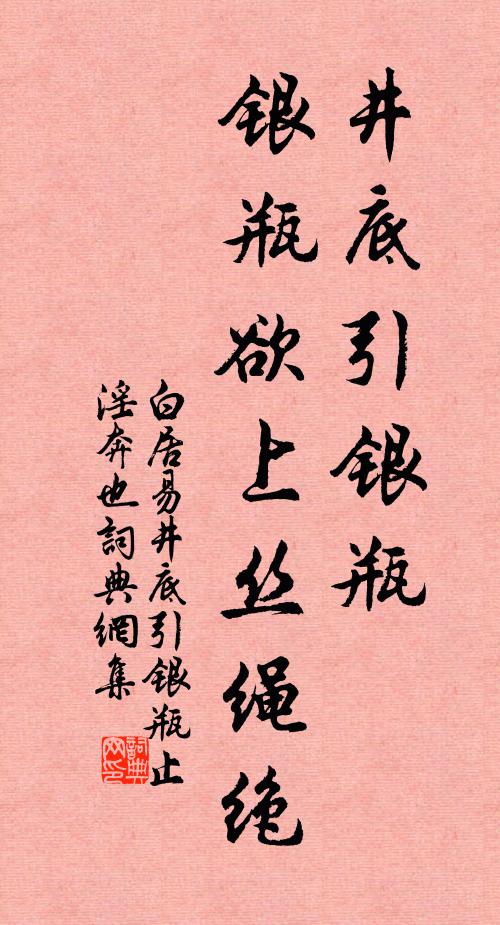 井底引银瓶
银瓶欲上丝绳绝
白居易井底引银瓶止
淫奔也詞典網集
詞典
网印